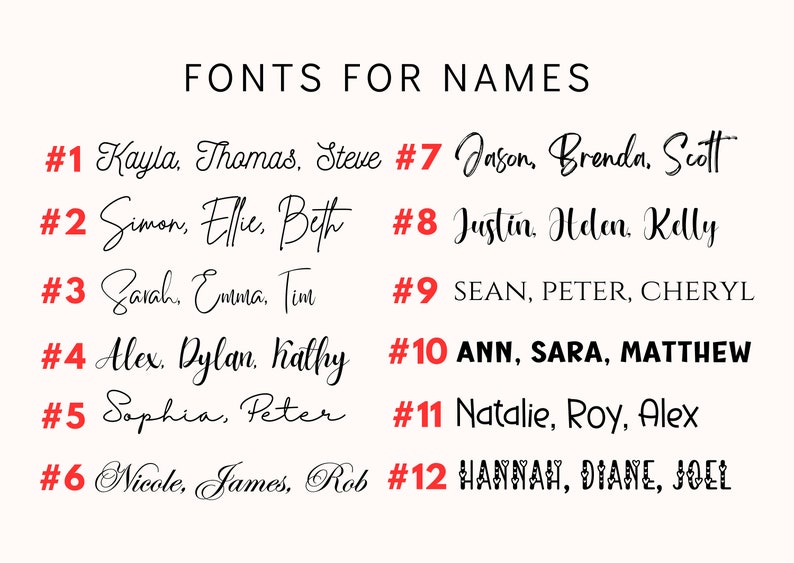 FONTS FOR NAMES
#1 Kayla, Thomas, Steve
#2 Simon, Ellie, Beth
#3 Sarah, Emma, Tim
#4 Alex, Dylan, Kathy
#5 Sophia, Peter
#6 Nicole, James, Rob
#7 Jason, Brenda, Scott
#8 Justin, Helen, Kelly
#9 SEAN, PETER, CHERYL
#10 ANN, SARA, MATTHEW
#11 Natalie, Roy, Alex
#12 HANNAH, DIANE, JOEL